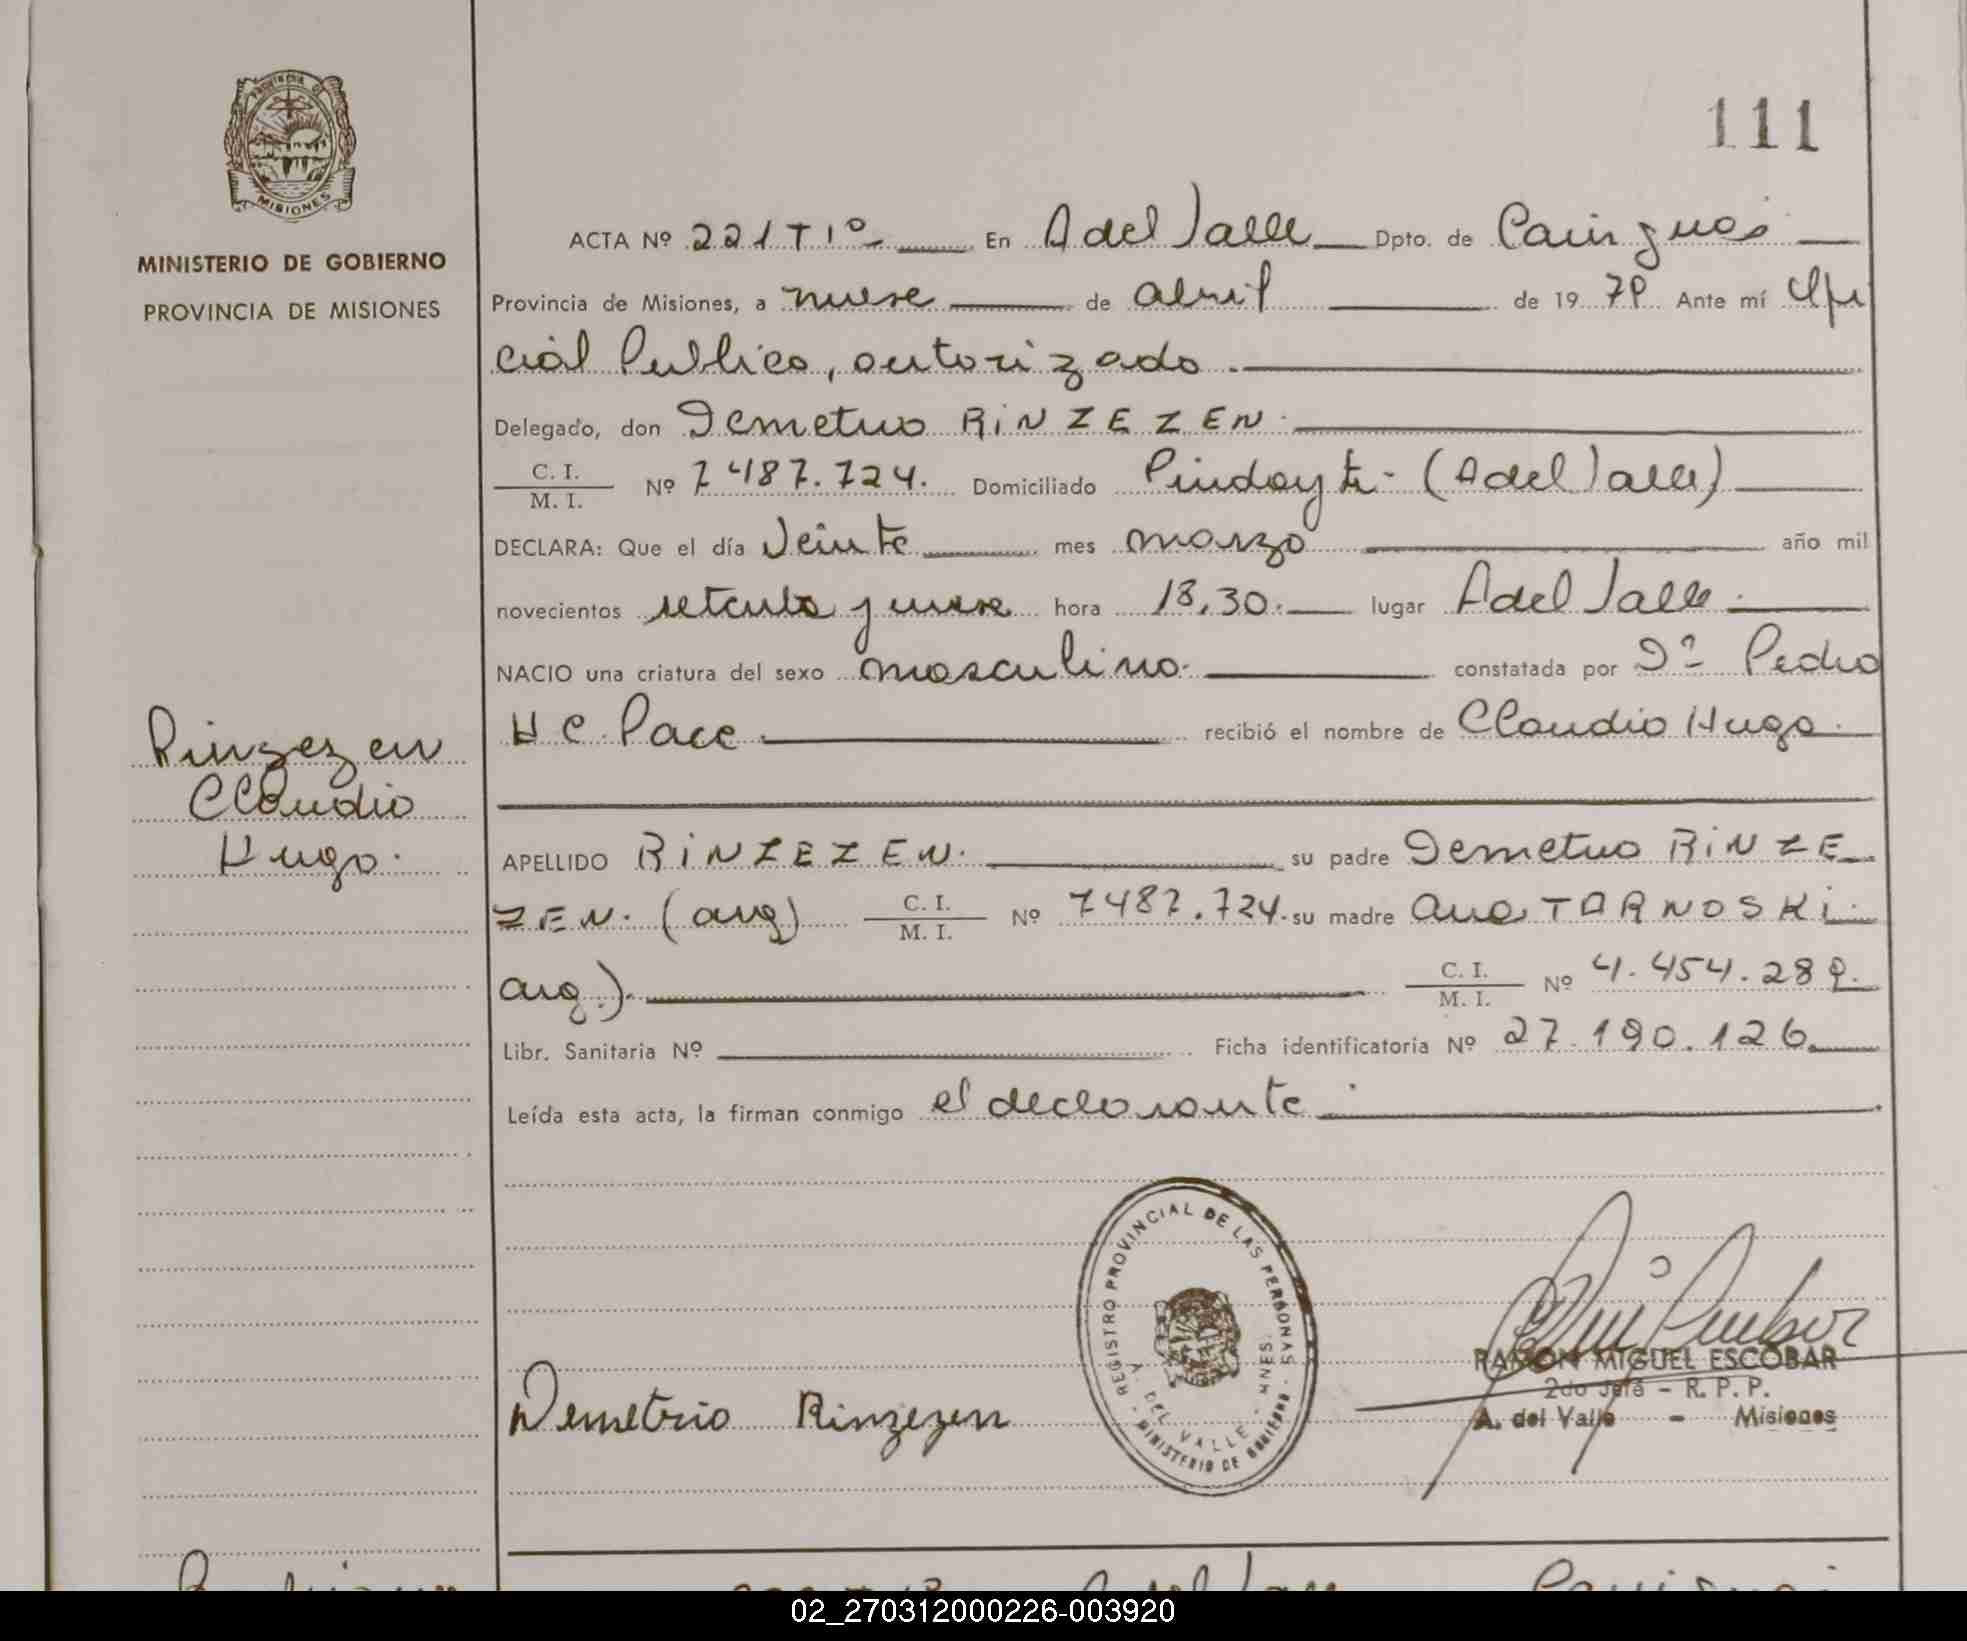 111
PROVINCIA DE
MISIONES
MINISTERIO DE GOBIERNO
PROVINCIA DE MISIONES
ACTA Nº 221 T 1º En A del Valle Dpto. de Cainguas
Provincia de Misiones, a nueve de abril de 1979 Ante mí Ofi
cial Publico, autorizado.
Delegado, don Demetrio RINZEZEN.
C. I. / M. I. Nº 7487.724. Domiciliado Pindayti- (A del Valle)
DECLARA: Que el día Veinte mes marzo año mil
novecientos setenta y nueve hora 18,30. lugar A del Valle.
NACIO una criatura del sexo masculino. constatada por Dº Pedro
H C. Pace recibió el nombre de Claudio Hugo.
Rinzezen
Claudio
Hugo.
APELLIDO RINZEZEN. su padre Demetrio RINZE
ZEN. (arg) C. I. / M. I. Nº 7487.724. su madre Ana TARNOSKI.
arg.). C. I. / M. I. Nº 4.454.289.
Libr. Sanitaria Nº Ficha identificatoria Nº 27.190.126
Leída esta acta, la firman conmigo el declarante.
REGISTRO PROVINCIAL DE LAS PERSONAS
A. DEL VALLE - MNES
MINISTERIO DE GOBIERNO
Demetrio Rinzezen
RAMON MIGUEL ESCOBAR
2do Jefe - R. P. P.
A. del Valle - Misiones
02_270312000226-003920